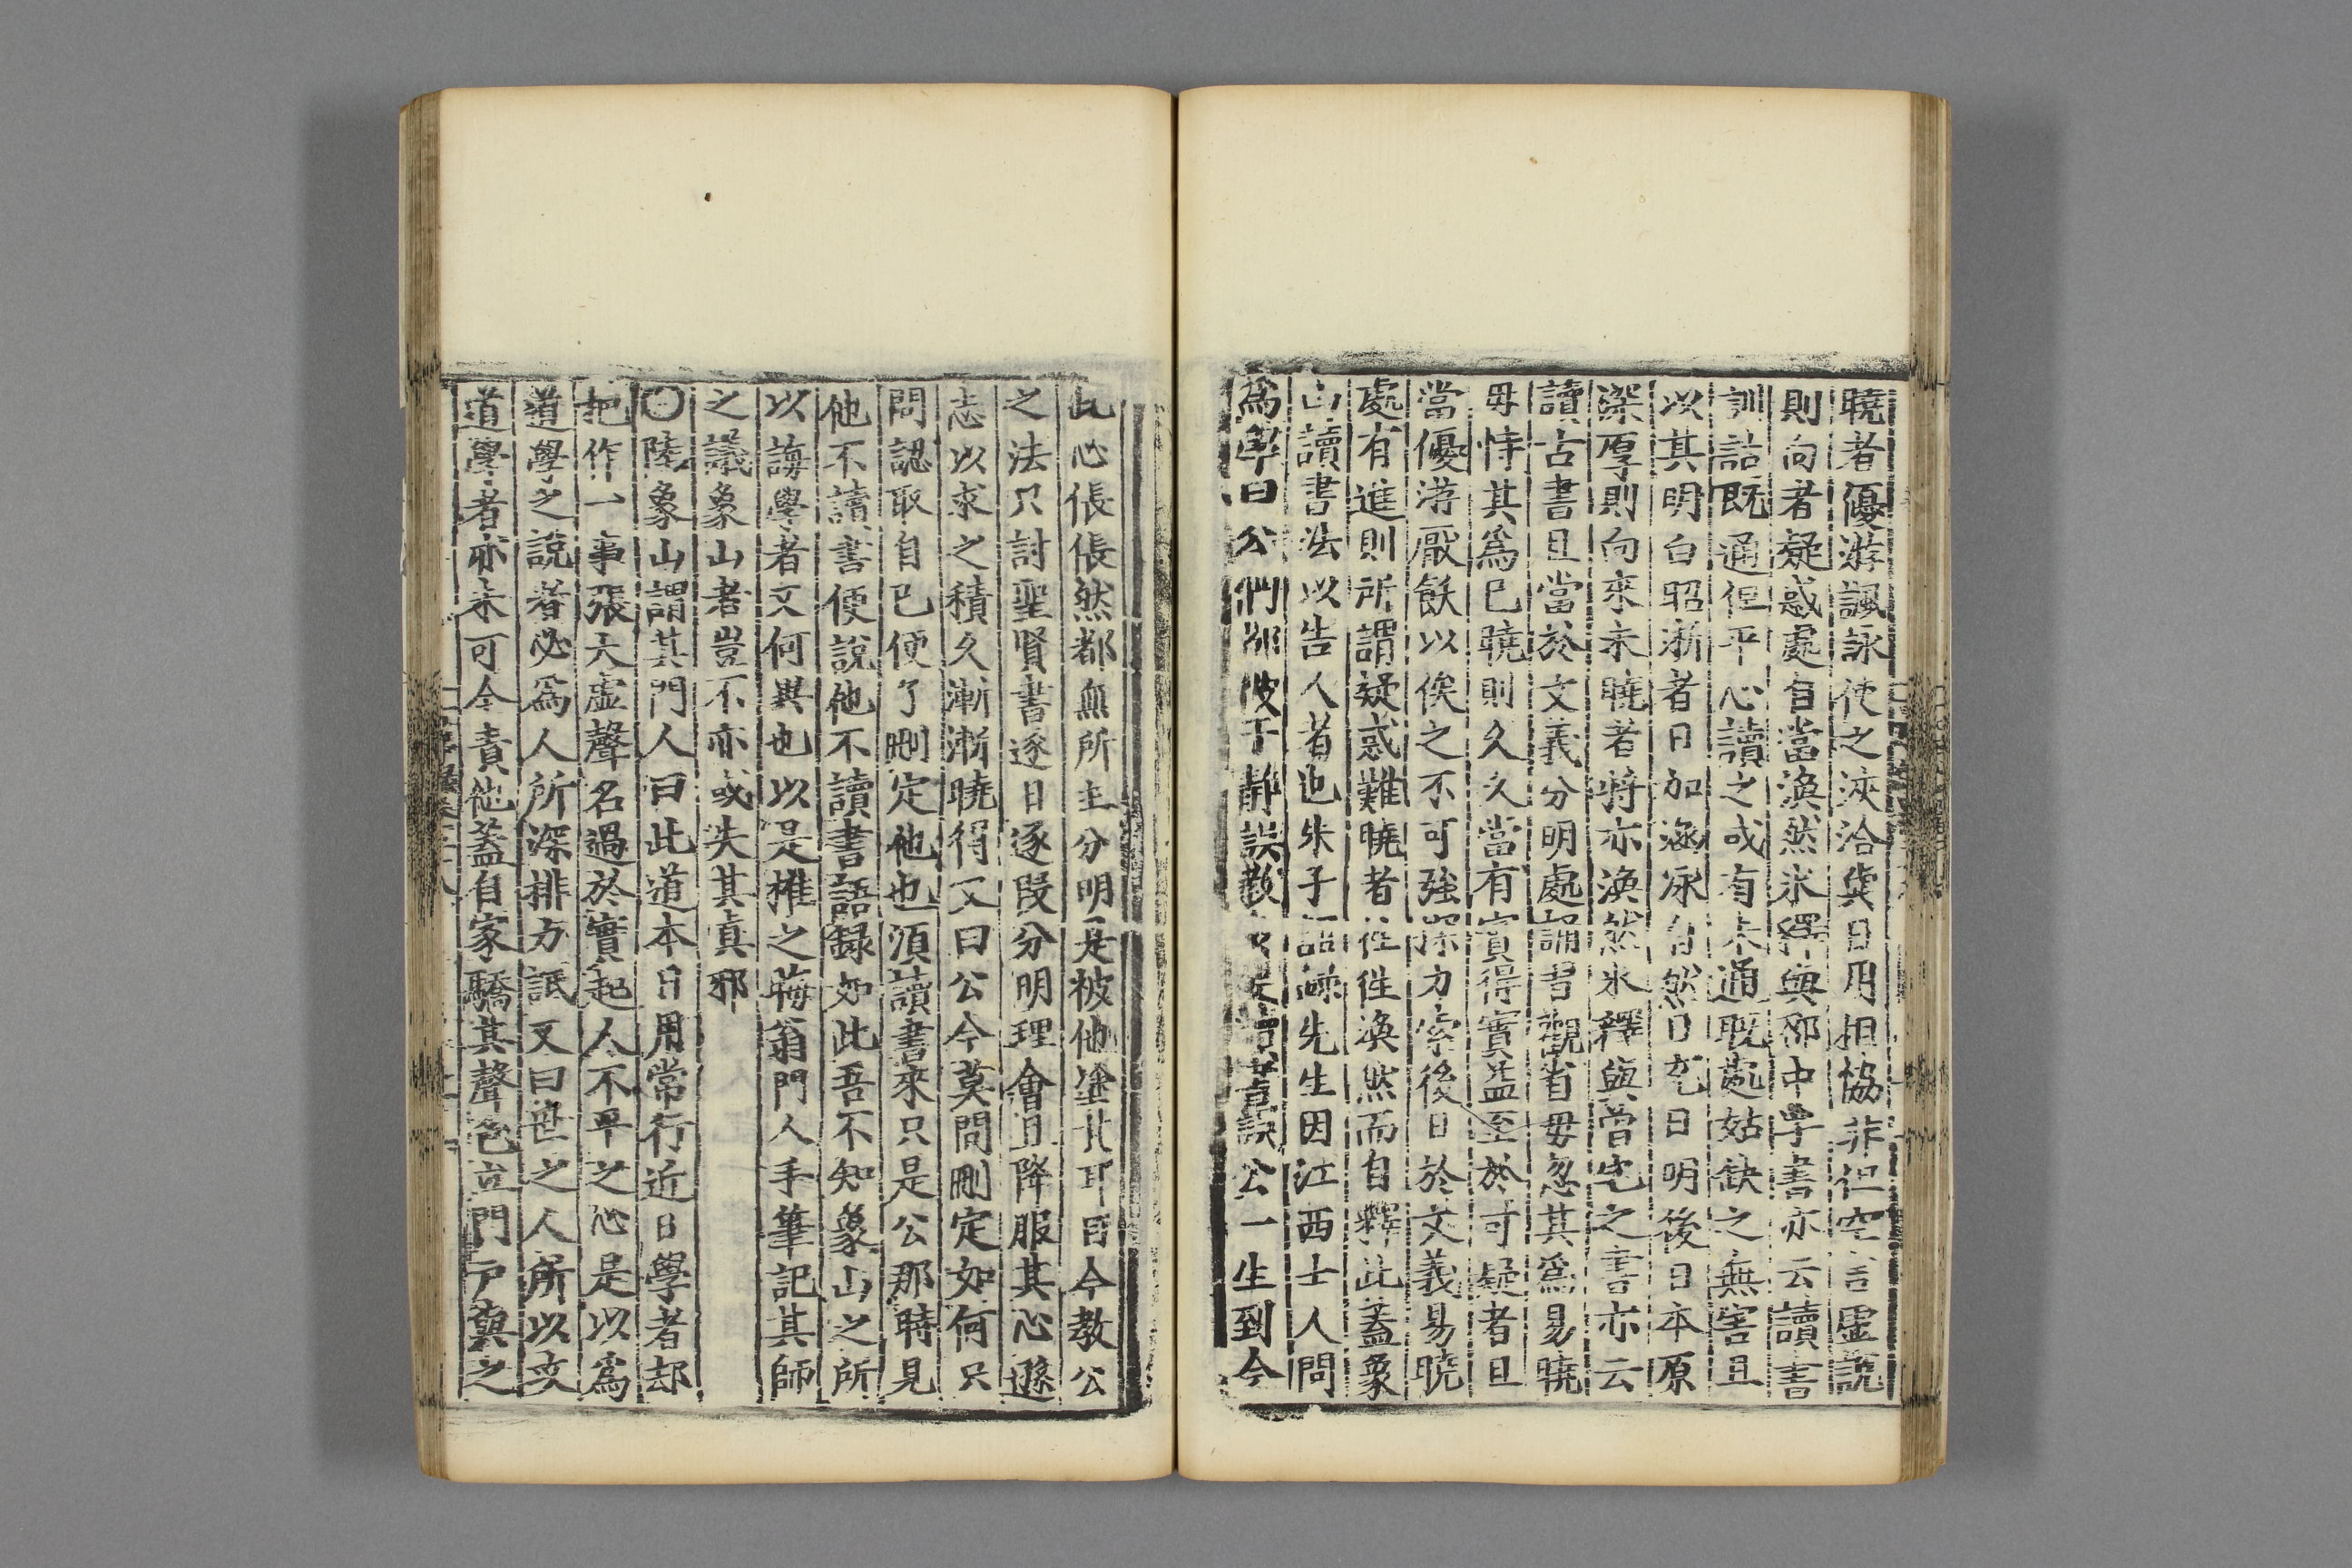 曉者優游諷詠使之浹洽與日用相協非但空言虛說
則向者疑惑處自當渙然氷釋與邵中孚書亦云讀書
訓詁旣通但平心讀之或有未通曉處姑缺之無害且
以其明白昭晰者日加涵泳自然日充日明後日本原
深厚則向來未曉者將亦渙然氷釋與曾宅之書亦云
讀古書且當於文義分明處誦習觀省毋忽其爲易曉
毋恃其爲已曉則久久當有實得實益至於可疑者且
當優游厭飫以俟之不可強探力索後日於文義易曉
處有進則所謂疑惑難曉者徃徃渙然而自釋此蓋象
山讀書法以告人者也朱子語錄先生因江西士人問
爲學曰公們都被子靜誤敎 讀書誤公一生到今
此心倀倀然都無所主分明是被他塗 耳目今教公
之法只討聖賢書逐日逐段分明理會且降服其心遜
志以求之積久漸漸曉得又曰公今莫問刪定如何只
問認取自己便了刪定他也須讀書來只是公那時見
他不讀書便說他不讀書語錄如此吾不知象山之所
以誨學者又何異也以是推之晦翁門人手筆記其師
之議象山者豈不亦或失其真邪
〇陸象山謂其門人曰此道本日用常行近日學者却
把作一事張大虛聲名過於實起人不平之心是以爲
道學之說者必爲人所深排力詆又曰世之人所以攻
道學者亦未可全責他蓋自家驕其聲色立門戶與之